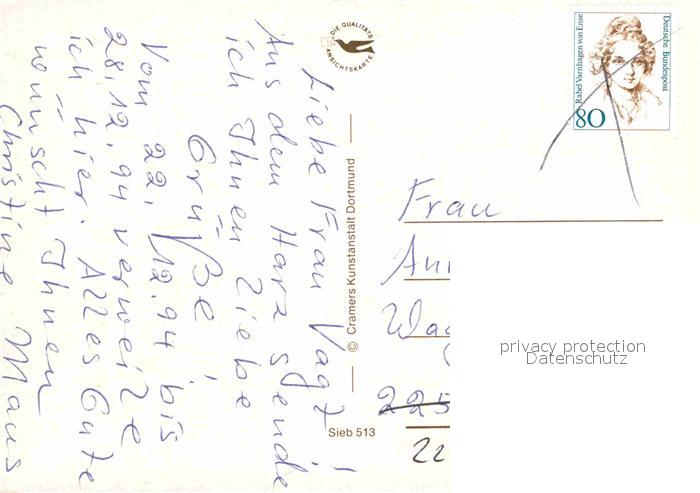 Liebe Frau Vagt!
Aus dem Harz sende
ich Ihnen liebe
Grüße!
Vom 22.12.94 bis
28.12.94 verweile
ich hier. Alles Gute
wünscht Ihnen
Christine Maus
DIE QUALITÄTS
ANSICHTSKARTE
© Cramers Kunstanstalt Dortmund
Sieb 513
Rahel Varnhagen von Ense
Deutsche Bundespost
80
Frau
225
22
privacy protection
Datenschutz